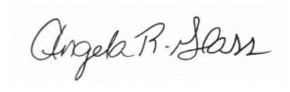 Angela R. Glass